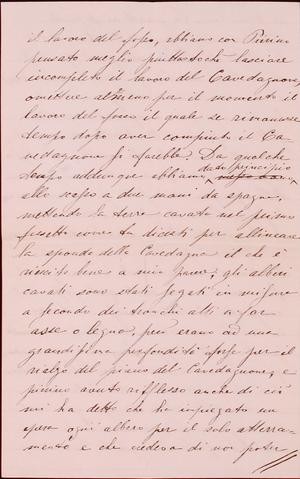 il lavoro del fosso, abbiamo con Pierino
pensato meglio piuttosto che lasciare
incompleto il lavoro del Cavedagnone,
omettere almeno per il momento il
lavoro del fosso il quale se rimanesse
tempo dopo aver compiuto il Ca
vedagnone si farebbe. Da qualche
tempo addunque abbiamo dato principio
allo scasso a due mani da spagna,
mettendo la terra cavata nel primo
fossetto come ta dicesti per allineare
la sponda della Cavedagna il che è
riescito bene a mio parere. gli alberi
cavati sono stati segati in misura
a secondo dei tronchi atti a far
asse o legna, però erano ad una
grandissima profondità forse per il
rialzo del piano del Cavedagnone, e
Pierino avuto riflesso anche di ciò
mi ha detto che ha impiegato un
opera ogni albero per il solo atterra-
mento e che credeva di non poter